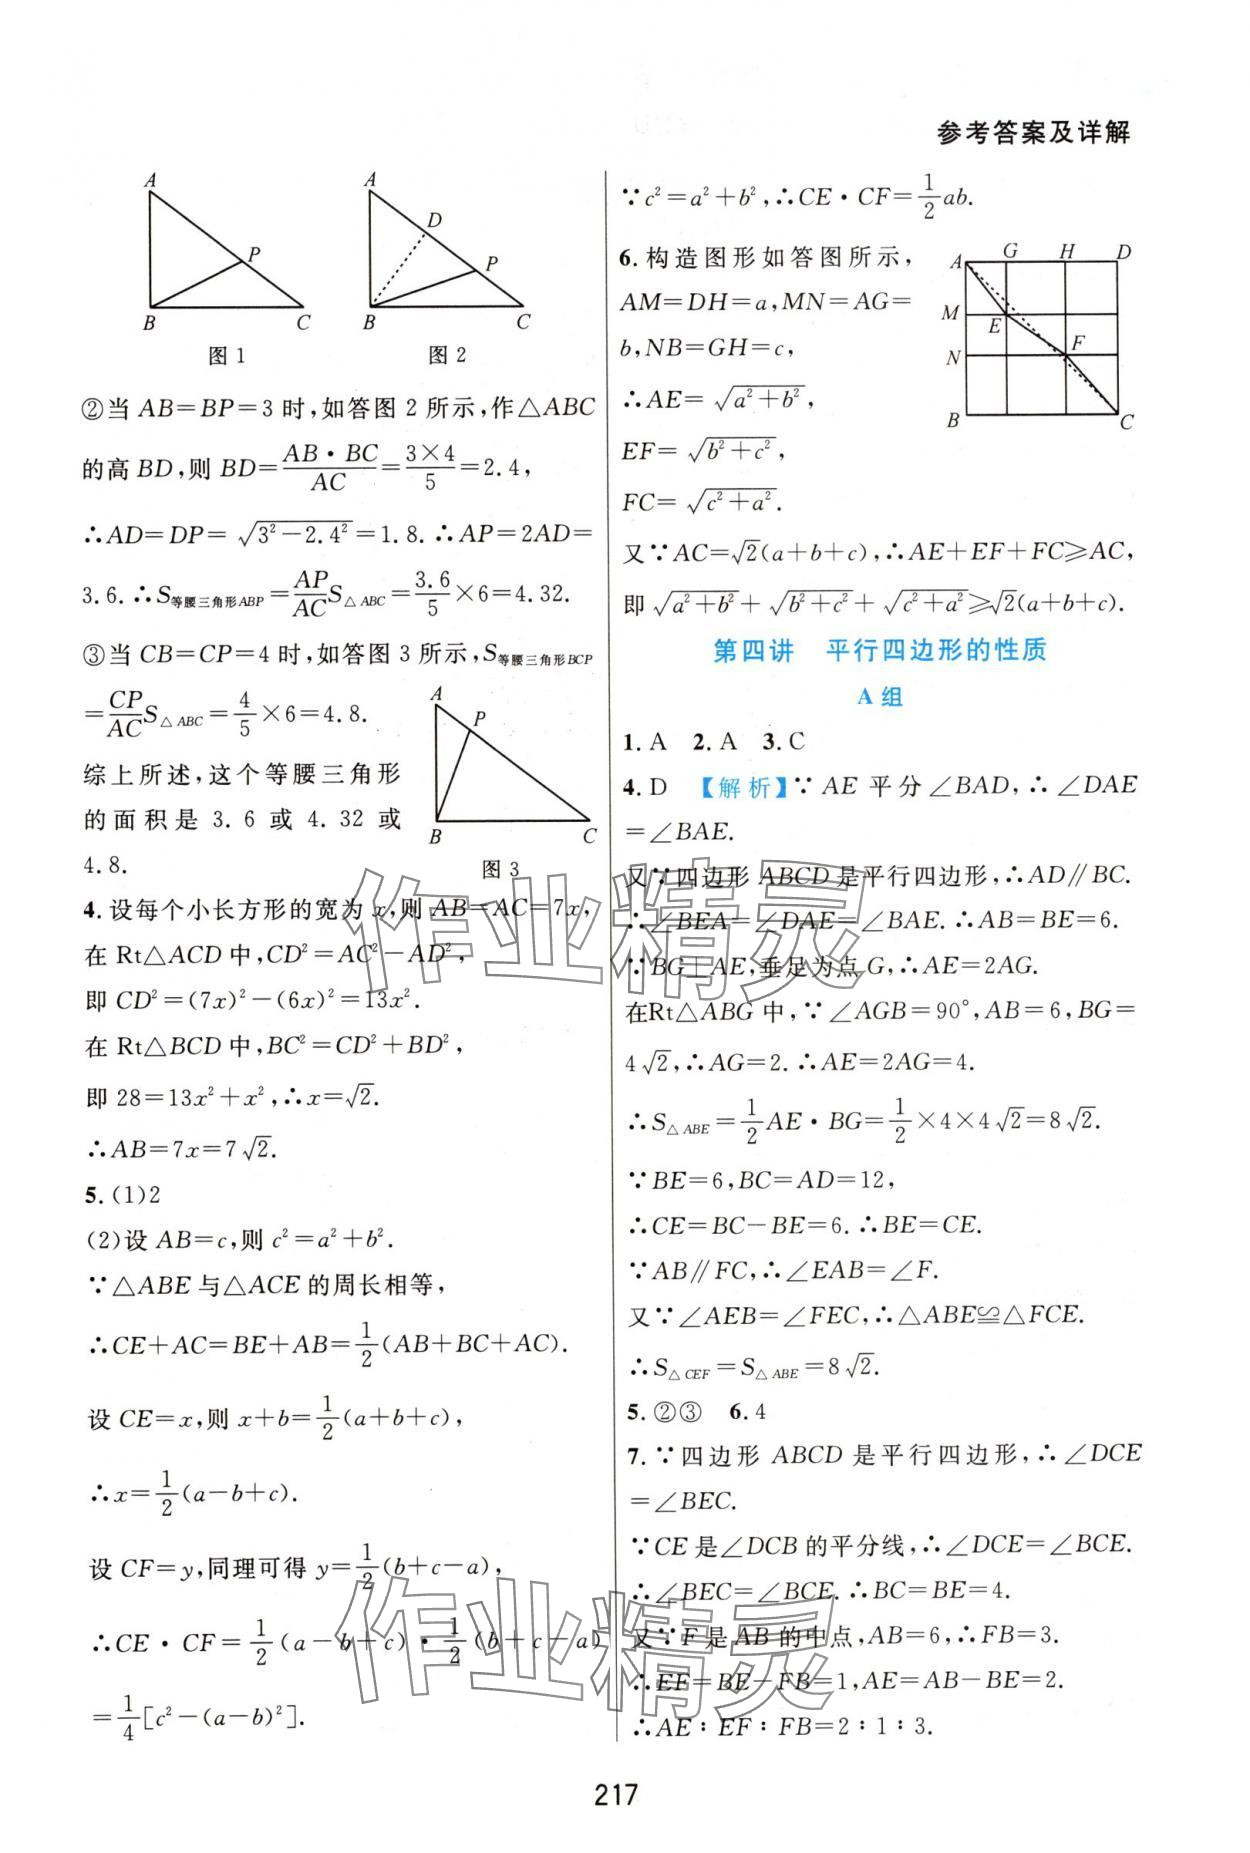 参考答案及详解
A
P
B
C
图 1
A
D
P
B
C
图 2
②当 AB=BP=3 时,如答图 2 所示,作△ABC
的高 BD,则 BD=\frac{AB·BC}{AC}=\frac{3×4}{5}=2.4,
∴AD=DP=√(3²-2.4²)=1.8.∴AP=2AD=
3.6.∴S等腰三角形ABP=\frac{AP}{AC}S△ABC=\frac{3.6}{5}×6=4.32.
③当 CB=CP=4 时,如答图 3 所示,S等腰三角形BCP
=\frac{CP}{AC}S△ABC=\frac{4}{5}×6=4.8.
综上所述,这个等腰三角形
的面积是 3.6 或 4.32 或
4.8.
A
P
B
C
图 3
4.设每个小长方形的宽为 x,则 AB=AC=7x,
在 Rt△ACD 中,CD²=AC²-AD²,
即 CD²=(7x)²-(6x)²=13x².
在 Rt△BCD 中,BC²=CD²+BD²,
即 28=13x²+x²,∴x=√2.
∴AB=7x=7√2.
5.(1)2
(2)设 AB=c,则 c²=a²+b².
∵△ABE 与△ACE 的周长相等,
∴CE+AC=BE+AB=\frac{1}{2}(AB+BC+AC).
设 CE=x,则 x+b=\frac{1}{2}(a+b+c),
∴x=\frac{1}{2}(a-b+c).
设 CF=y,同理可得 y=\frac{1}{2}(b+c-a),
∴CE·CF=\frac{1}{2}(a-b+c)·\frac{1}{2}(b+c-a)
=\frac{1}{4}[c²-(a-b)²].
∵c²=a²+b²,∴CE·CF=\frac{1}{2}ab.
6.构造图形如答图所示,
AM=DH=a,MN=AG=
b,NB=GH=c,
∴AE=√(a²+b²),
EF=√(b²+c²),
FC=√(c²+a²).
A
G
H
D
M
E
F
N
B
C
又∵AC=√2(a+b+c),∴AE+EF+FC⩾AC,
即√(a²+b²)+√(b²+c²)+√(c²+a²)⩾√2(a+b+c).
第四讲 平行四边形的性质
A 组
1.A 2.A 3.C
4.D 【解析】∵AE 平分∠BAD,∴∠DAE
=∠BAE.
又∵四边形 ABCD 是平行四边形,∴AD∥BC.
∴∠BEA=∠DAE=∠BAE.∴AB=BE=6.
∵BG⊥AE,垂足为点 G,∴AE=2AG.
在Rt△ABG 中,∵∠AGB=90°,AB=6,BG=
4√2,∴AG=2.∴AE=2AG=4.
∴S△ABE=\frac{1}{2}AE·BG=\frac{1}{2}×4×4√2=8√2.
∵BE=6,BC=AD=12,
∴CE=BC-BE=6.∴BE=CE.
∵AB∥FC,∴∠EAB=∠F.
又∵∠AEB=∠FEC,∴△ABE≌△FCE.
∴S△CEF=S△ABE=8√2.
5.②③ 6.4
7.∵四边形 ABCD 是平行四边形,∴∠DCE
=∠BEC.
∵CE是∠DCB的平分线,∴∠DCE=∠BCE.
∴∠BEC=∠BCE.∴BC=BE=4.
又∵F 是 AB 的中点,AB=6,∴FB=3.
∴EF=BE-FB=1,AE=AB-BE=2.
∴AE∶EF∶FB=2∶1∶3.
作业精灵
作业精灵
217